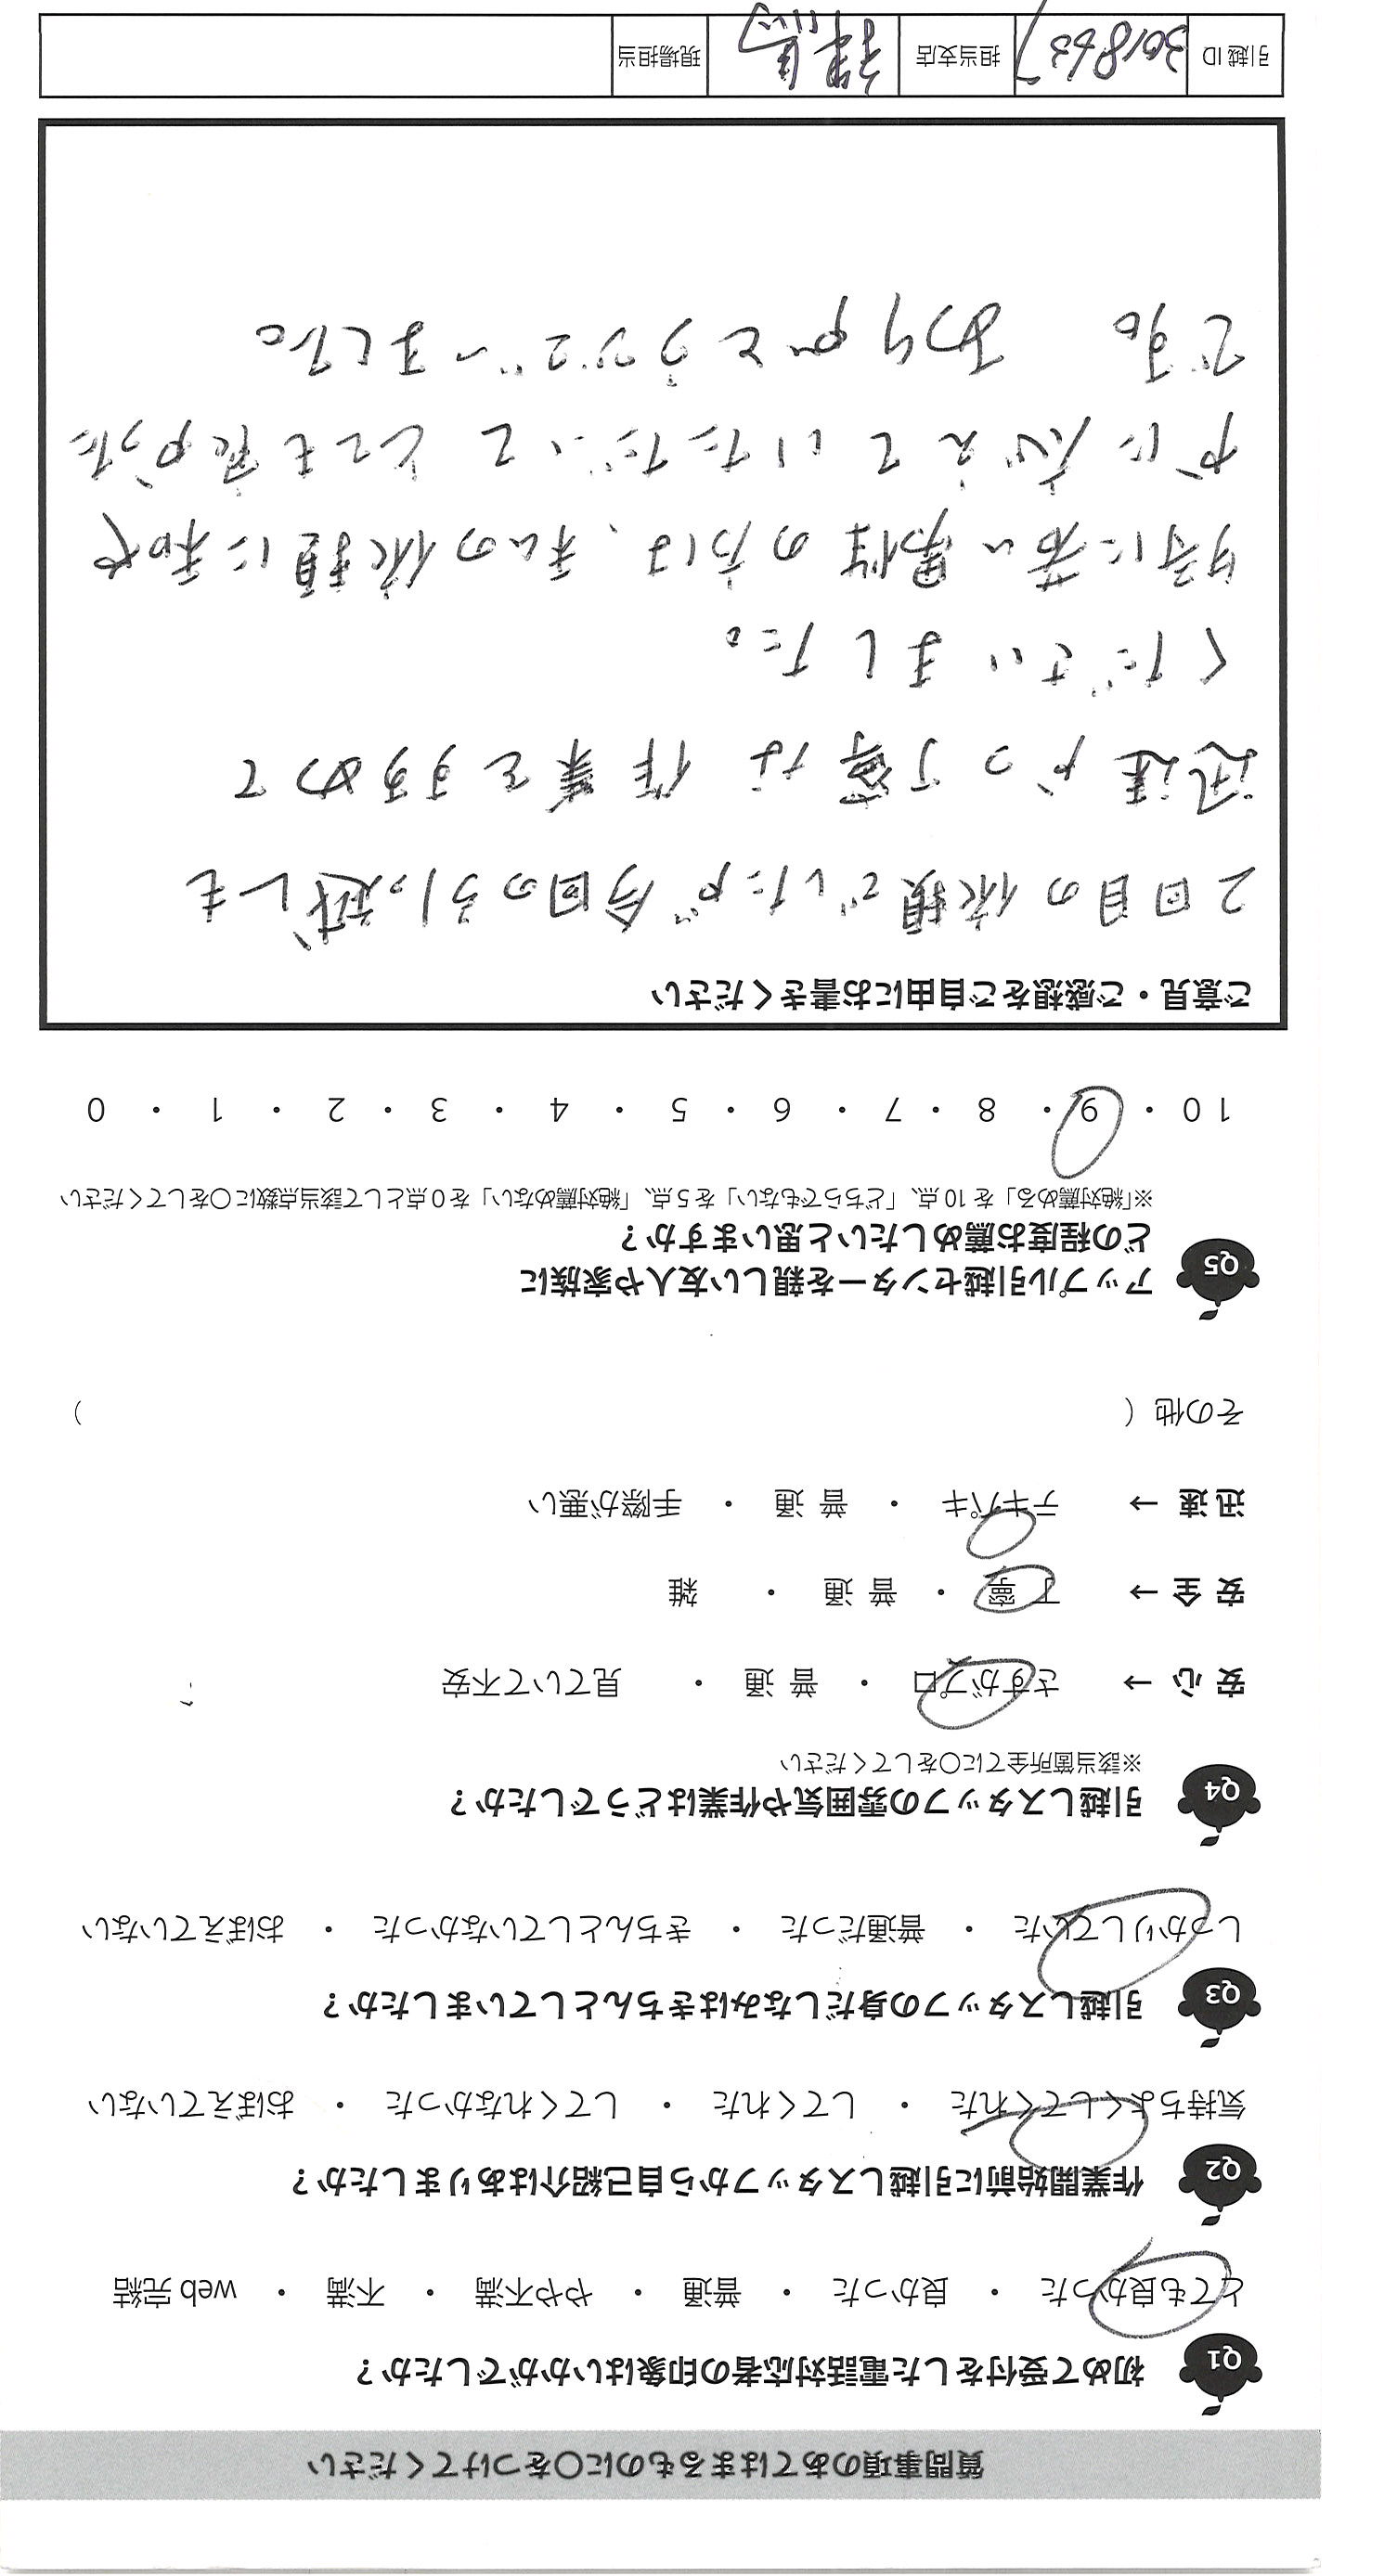 質問事項のあてはまるものに〇をつけてください
Q1 初めて受付をした電話対応者の印象はいかがでしたか？
とても良かった ・ 良かった ・ 普通 ・ やや不満 ・ 不満 ・ web 完結
Q2 作業開始前に引越しスタッフから自己紹介はありましたか？
気持ちよくしてくれた ・ してくれた ・ してくれなかった ・ おぼえていない
Q3 引越しスタッフの身だしなみはきちんとしていましたか？
しっかりしていた ・ 普通だった ・ きちんとしていなかった ・ おぼえていない
Q4 引越しスタッフの雰囲気や作業はどうでしたか？
※該当箇所全てに〇をしてください
安心 → さすがプロ ・ 普通 ・ 見ていて不安
安全 → 丁寧 ・ 普通 ・ 雑
迅速 → テキパキ ・ 普通 ・ 手際が悪い
その他（ ）
Q5 アップル引越センターを親しい友人や家族に
どの程度お薦めしたいと思いますか？
※「絶対薦める」を 10 点、「どちらでもない」を 5 点、「絶対薦めない」を 0 点として該当点数に〇をしてください
10 ・ 9 ・ 8 ・ 7 ・ 6 ・ 5 ・ 4 ・ 3 ・ 2 ・ 1 ・ 0
ご意見・ご感想をご自由にお書きください
2回目の依頼でしたが今回の引っ越しも
迅速かつ丁寧な作業をすすめて
くださいました。
特に若い男性の方は、私の依頼に和や
かに応えていただいてとても良かった
です。 ありがとうございました。
引越 ID 担当支店 練馬 現場担当